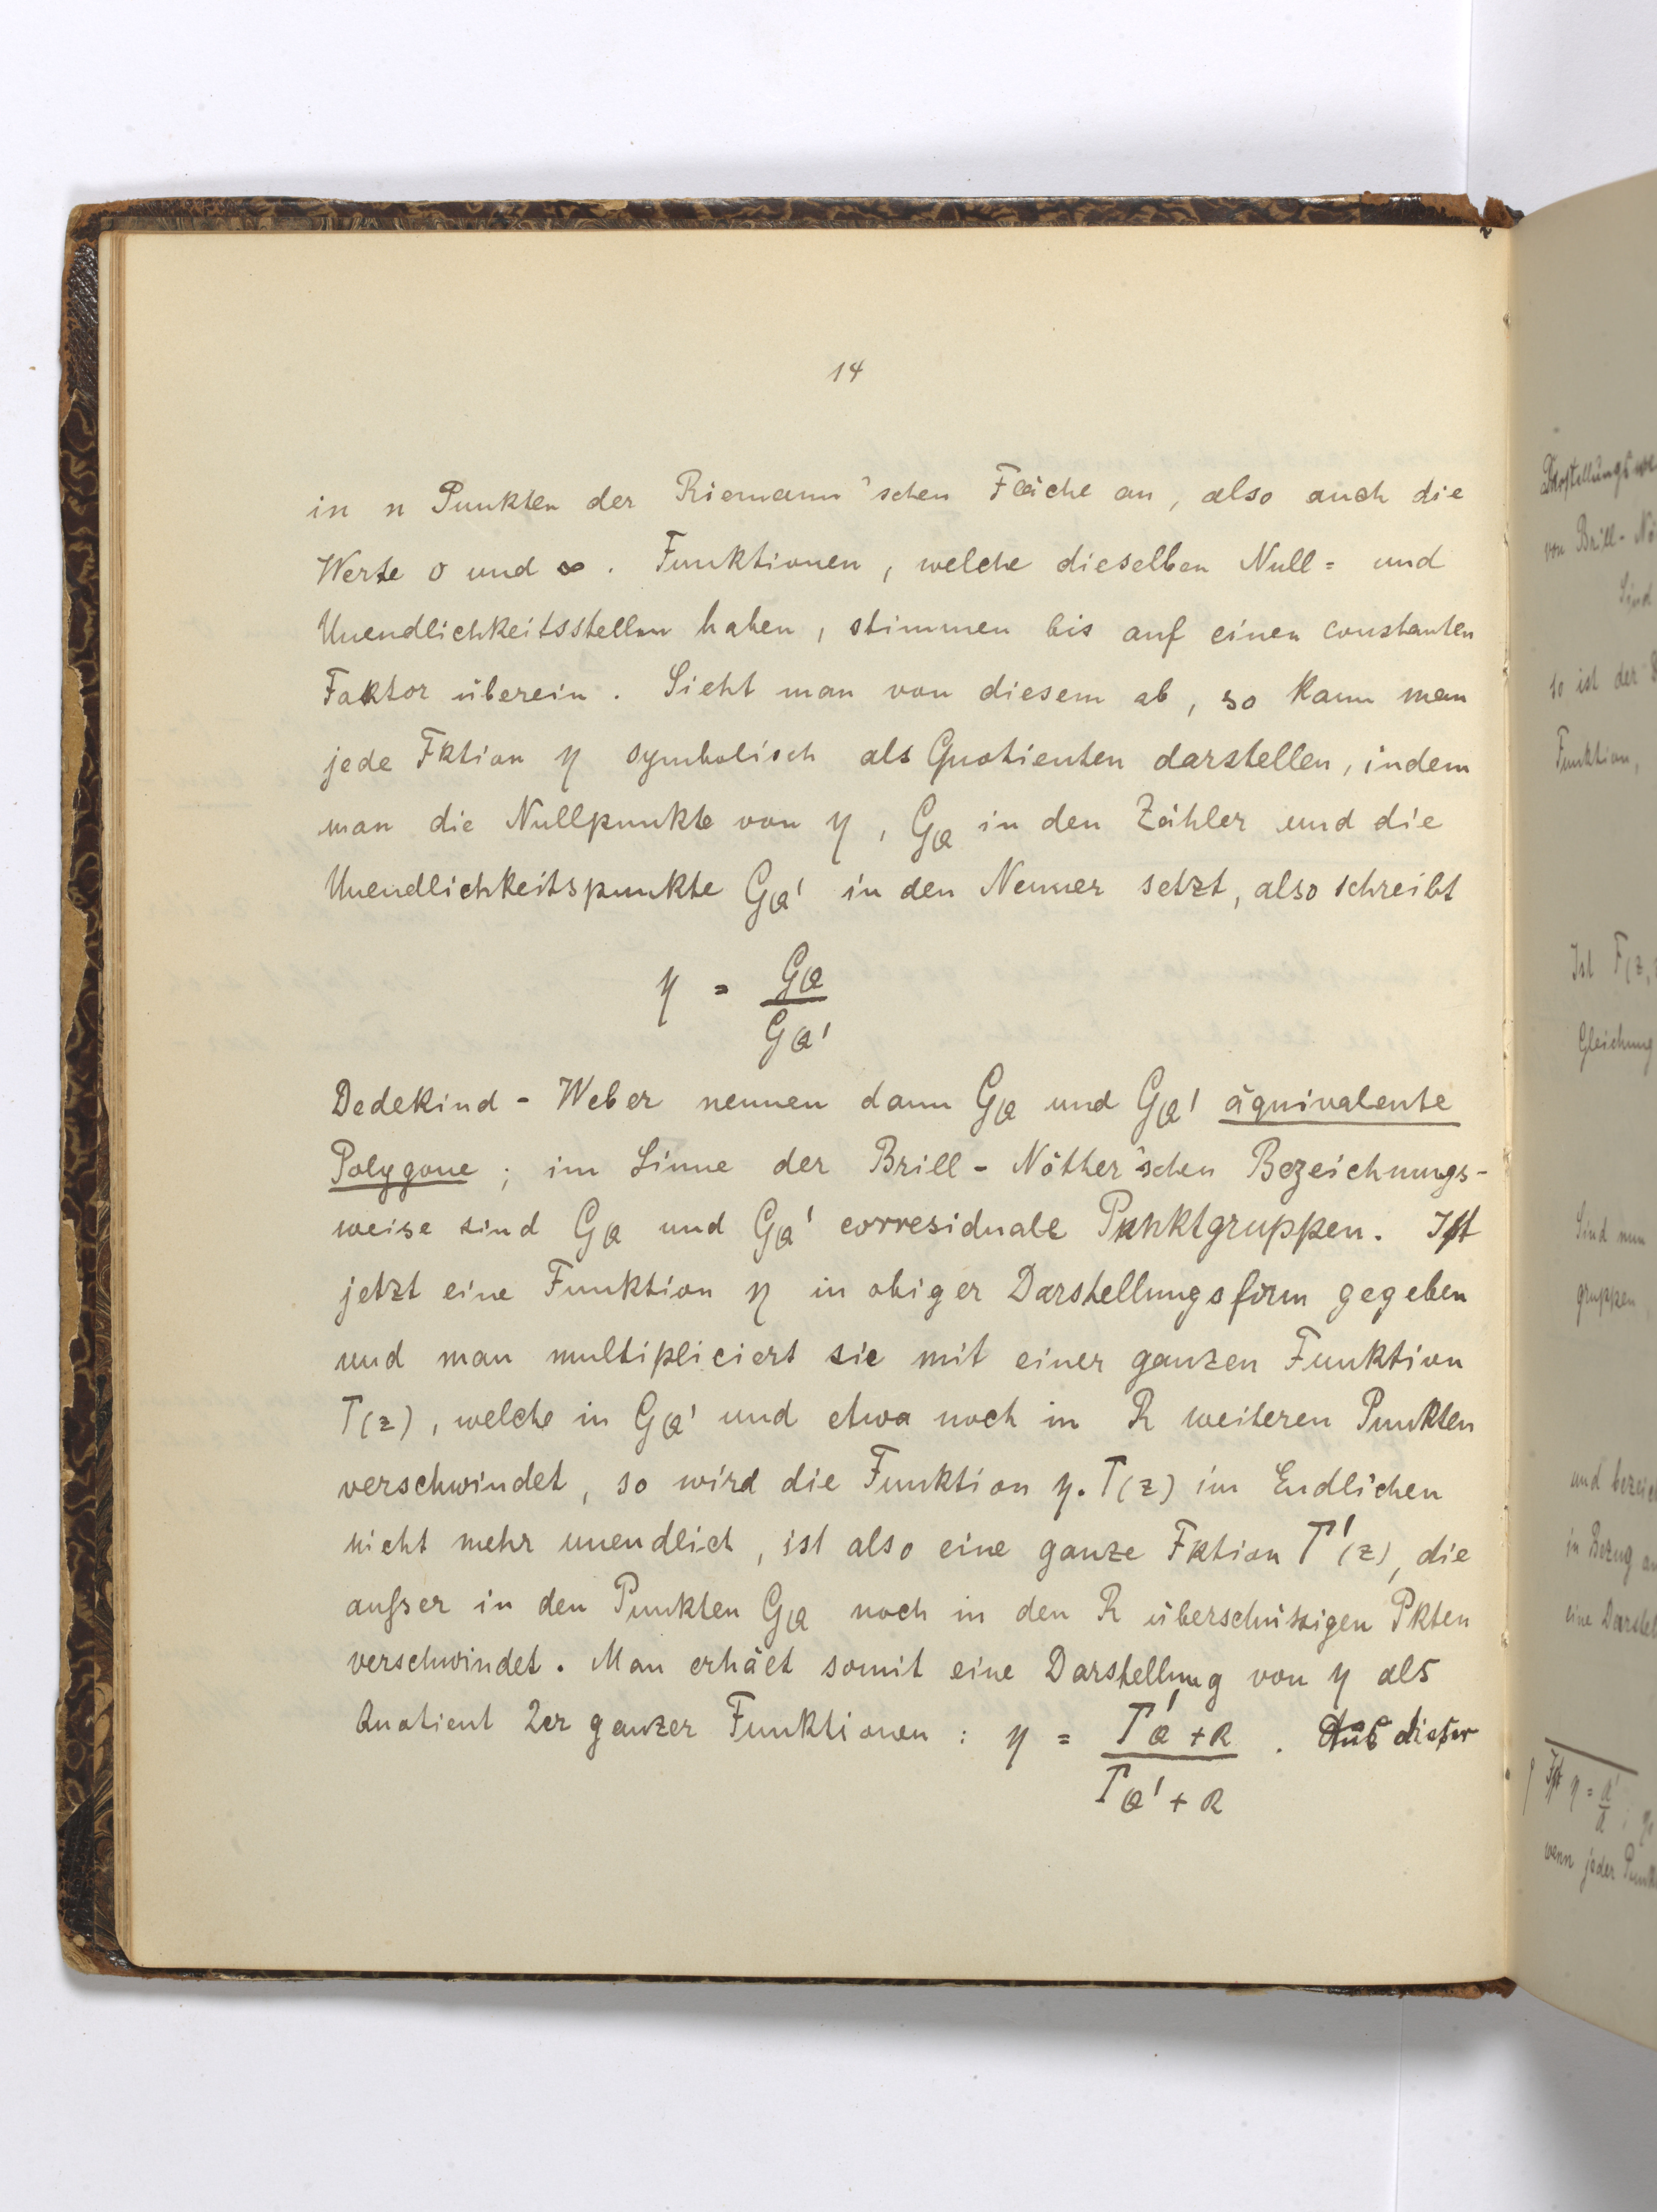 14
in n Punkten der Riemann'schen Fläche an, also auch die
Werte 0 und ∞. Funktionen, welche dieselben Null= und
Unendlichkeitsstellen haben, stimmen bis auf einen constanten
Faktor überein. Sieht man von diesem ab, so kann man
jede Fktion η symbolisch als Quotienten darstellen, indem
man die Nullpunkte von η, G_Q in den Zähler und die
Unendlichkeitspunkte G_Q' in den Nenner setzt, also schreibt
η = G_Q / G_Q'
Dedekind - Weber nennen dann G_Q und G_Q' äquivalente
Polygone; im Sinne der Brill - Nöther'schen Bezeichnungs-
weise sind G_Q und G_Q' corresiduale Punktgruppen. Ist
jetzt eine Funktion η in obiger Darstellungsform gegeben
und man multipliciert sie mit einer ganzen Funktion
T(z), welche in G_Q' und etwa noch in R weiteren Punkten
verschwindet, so wird die Funktion η. T(z) im Endlichen
nicht mehr unendlich, ist also eine ganze Fktion T'(z), die
außer in den Punkten G_Q noch in den R überschüssigen Pkten
verschwindet. Man erhält somit eine Darstellung von η als
Quotient 2er ganzer Funktionen: η = T'_Q+R / T_Q'+R. Aus dieser
von Brill - Nö
Sind
so ist der
Funktion,
Ist F(z,
Gleichung
Sind nun
gruppen
und bezeich
in Bezug an
eine Darstel
wenn jeder Punk